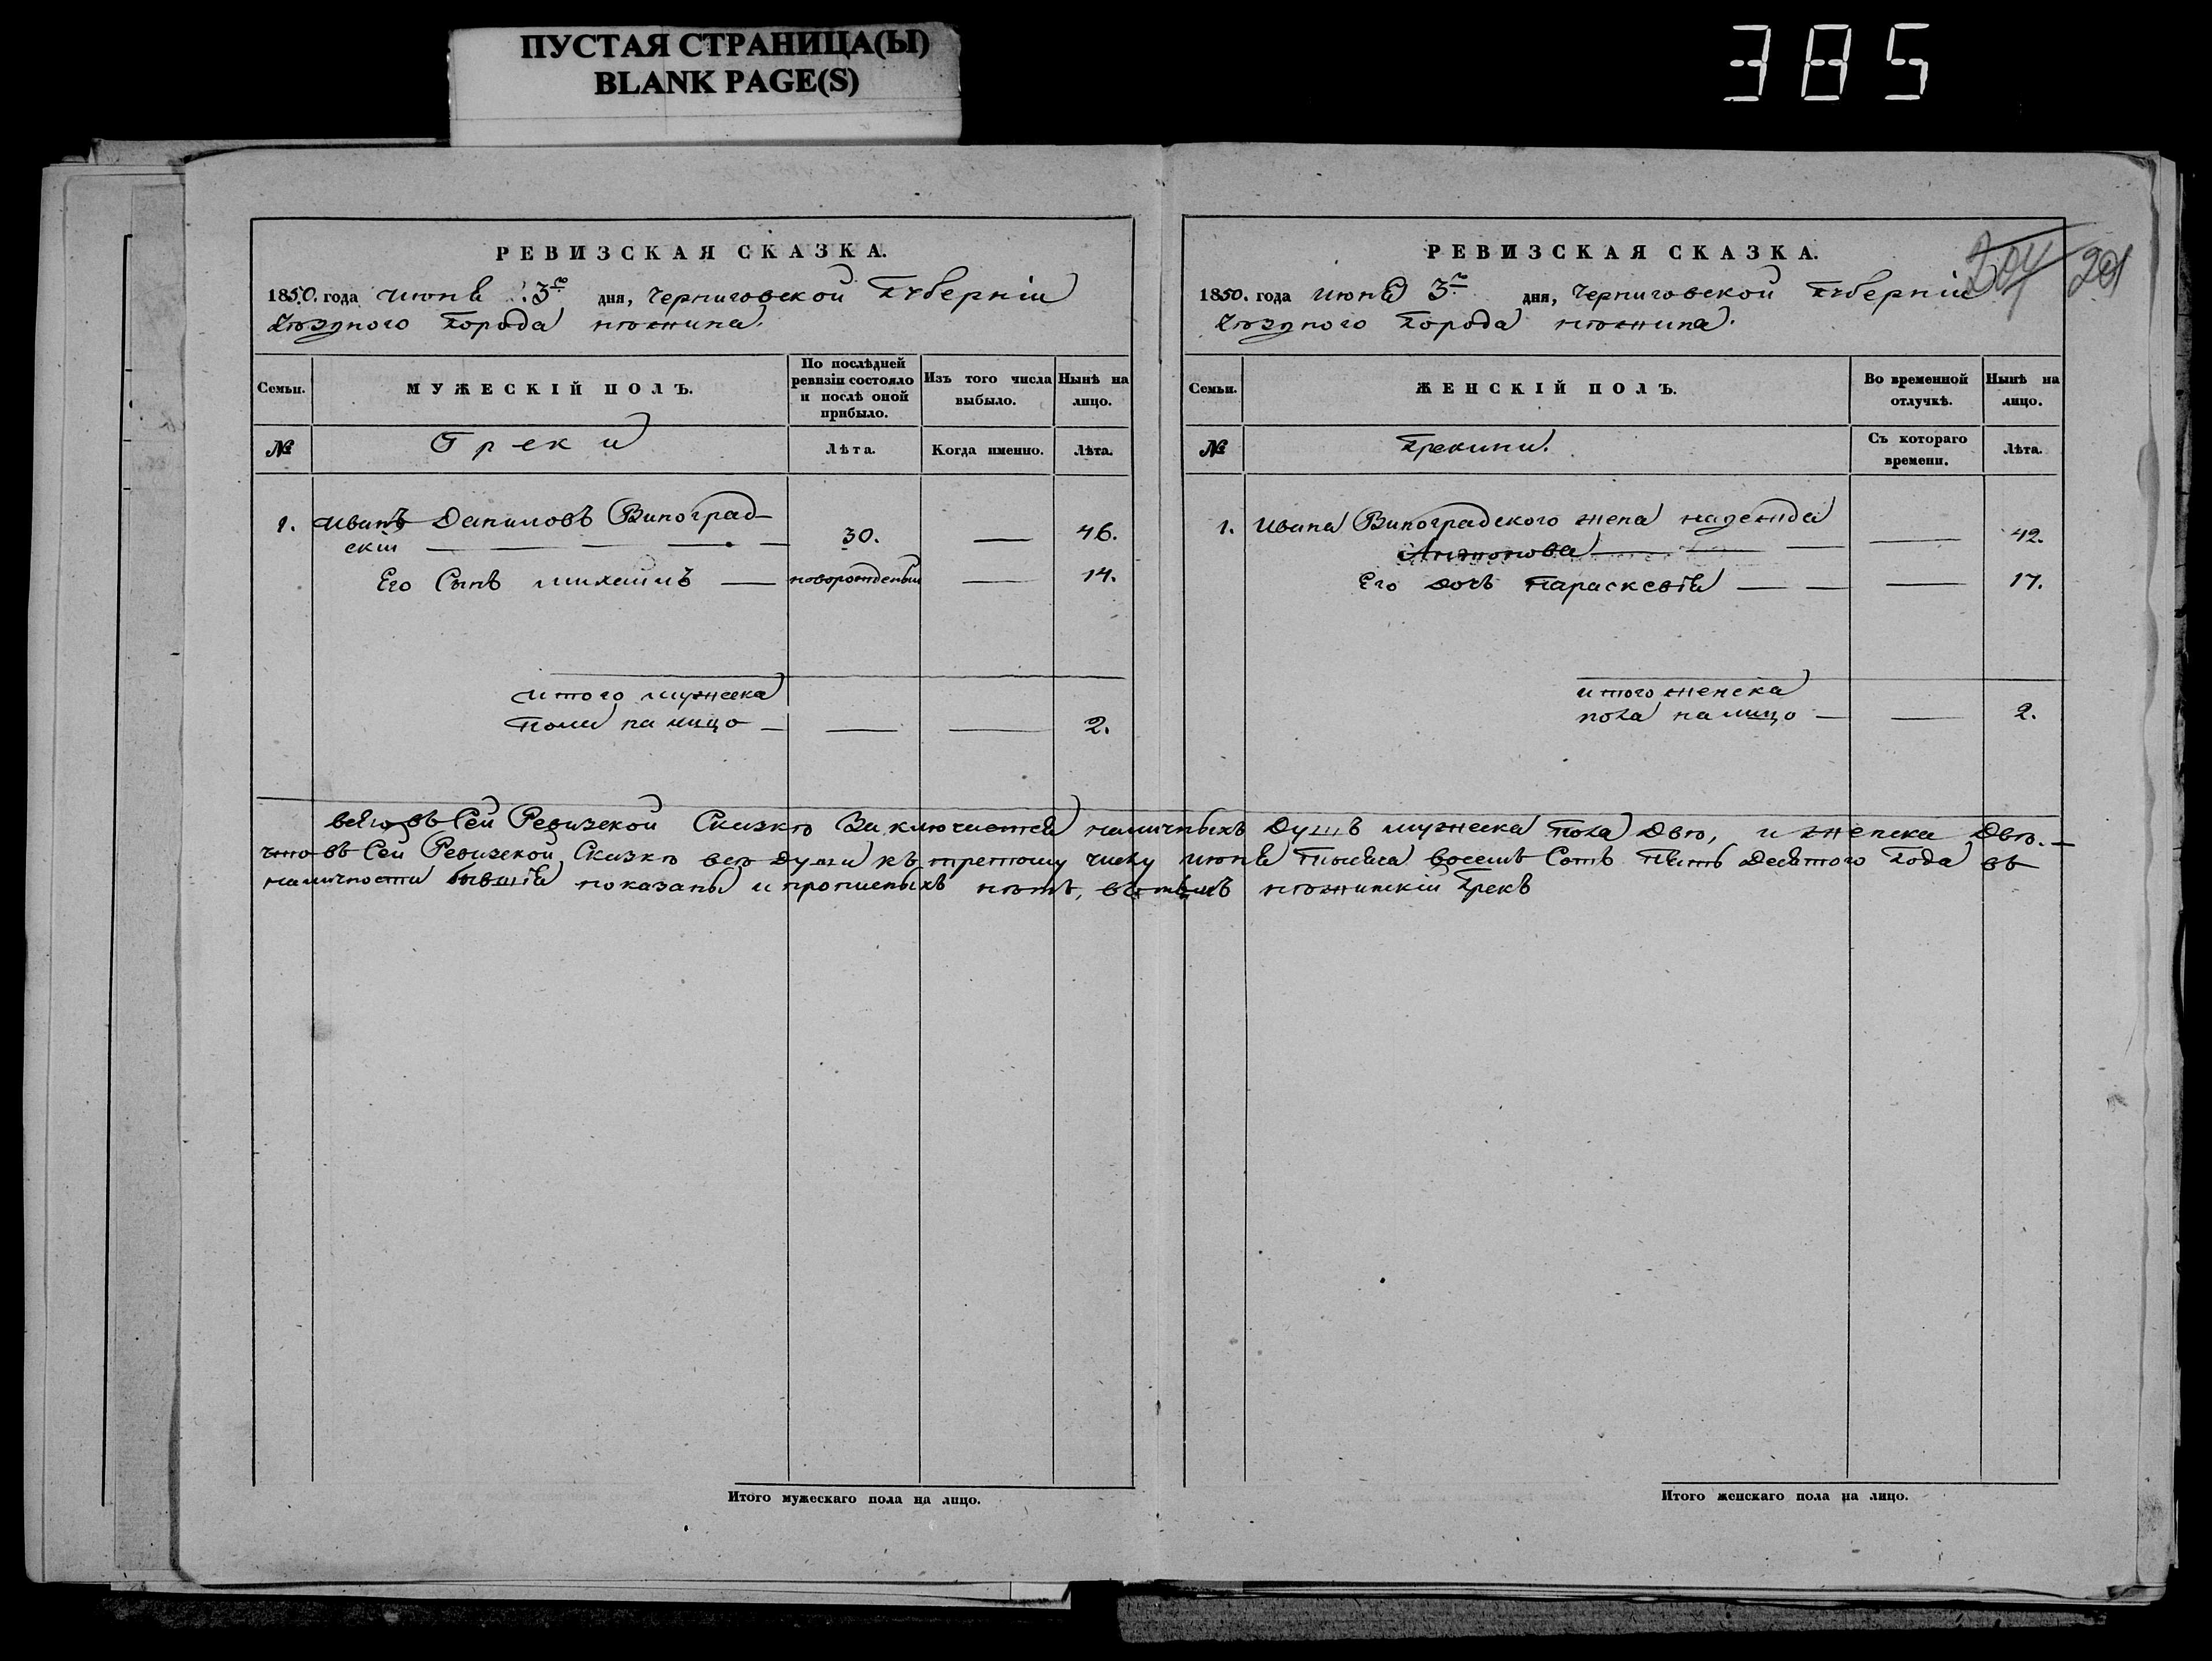 ПУСТАЯ СТРАНИЦА(Ы)
BLANK PAGE(S)
385
РЕВИЗСКАЯ СКАЗКА.
1850. года июня 3го дня, Черниговской Губерніи
уѣзднаго Города нѣжина.
Семьи.
МУЖЕСКІЙ ПОЛЪ.
По послѣдней ревизіи состояло и послѣ оной прибыло.
Изъ того числа выбыло.
Нынѣ на лицо.
№
Греки
Лѣта.
Когда именно.
Лѣта.
1. Иванъ Даниловъ Виноград-
скій — 30. — 46.
Его Сынъ михаилъ — новорожденый — 14.
итого мужеска
пола на лицо — — — 2.
РЕВИЗСКАЯ СКАЗКА.
204 201
1850. года июня 3го дня, Черниговской Губерніи
уѣзднаго Города нѣжина.
Семьи.
ЖЕНСКІЙ ПОЛЪ.
Во временной отлучкѣ.
Нынѣ на лицо.
№
Грекини.
Съ котораго времени.
Лѣта.
1. Ивана Виноградского жена надежда
Антонова — — 42.
Его дочь Параскевія — — 17.
итого женска
пола на лицо — — 2.
всего въ Сей Ревизской Сказкѣ Заключается наличныхъ душъ мужеска пола двѣ, и женска двѣ. —
что въ Сей Ревизской Сказкѣ всѣ души къ третому числу июня тысяча восемь Сотъ Пять десятого Года въ
наличности бывшія показаны и прописныхъ нѣтъ, въ томъ нѣжинскій Грекъ
Итого мужескаго пола на лицо.
Итого женскаго пола на лицо.